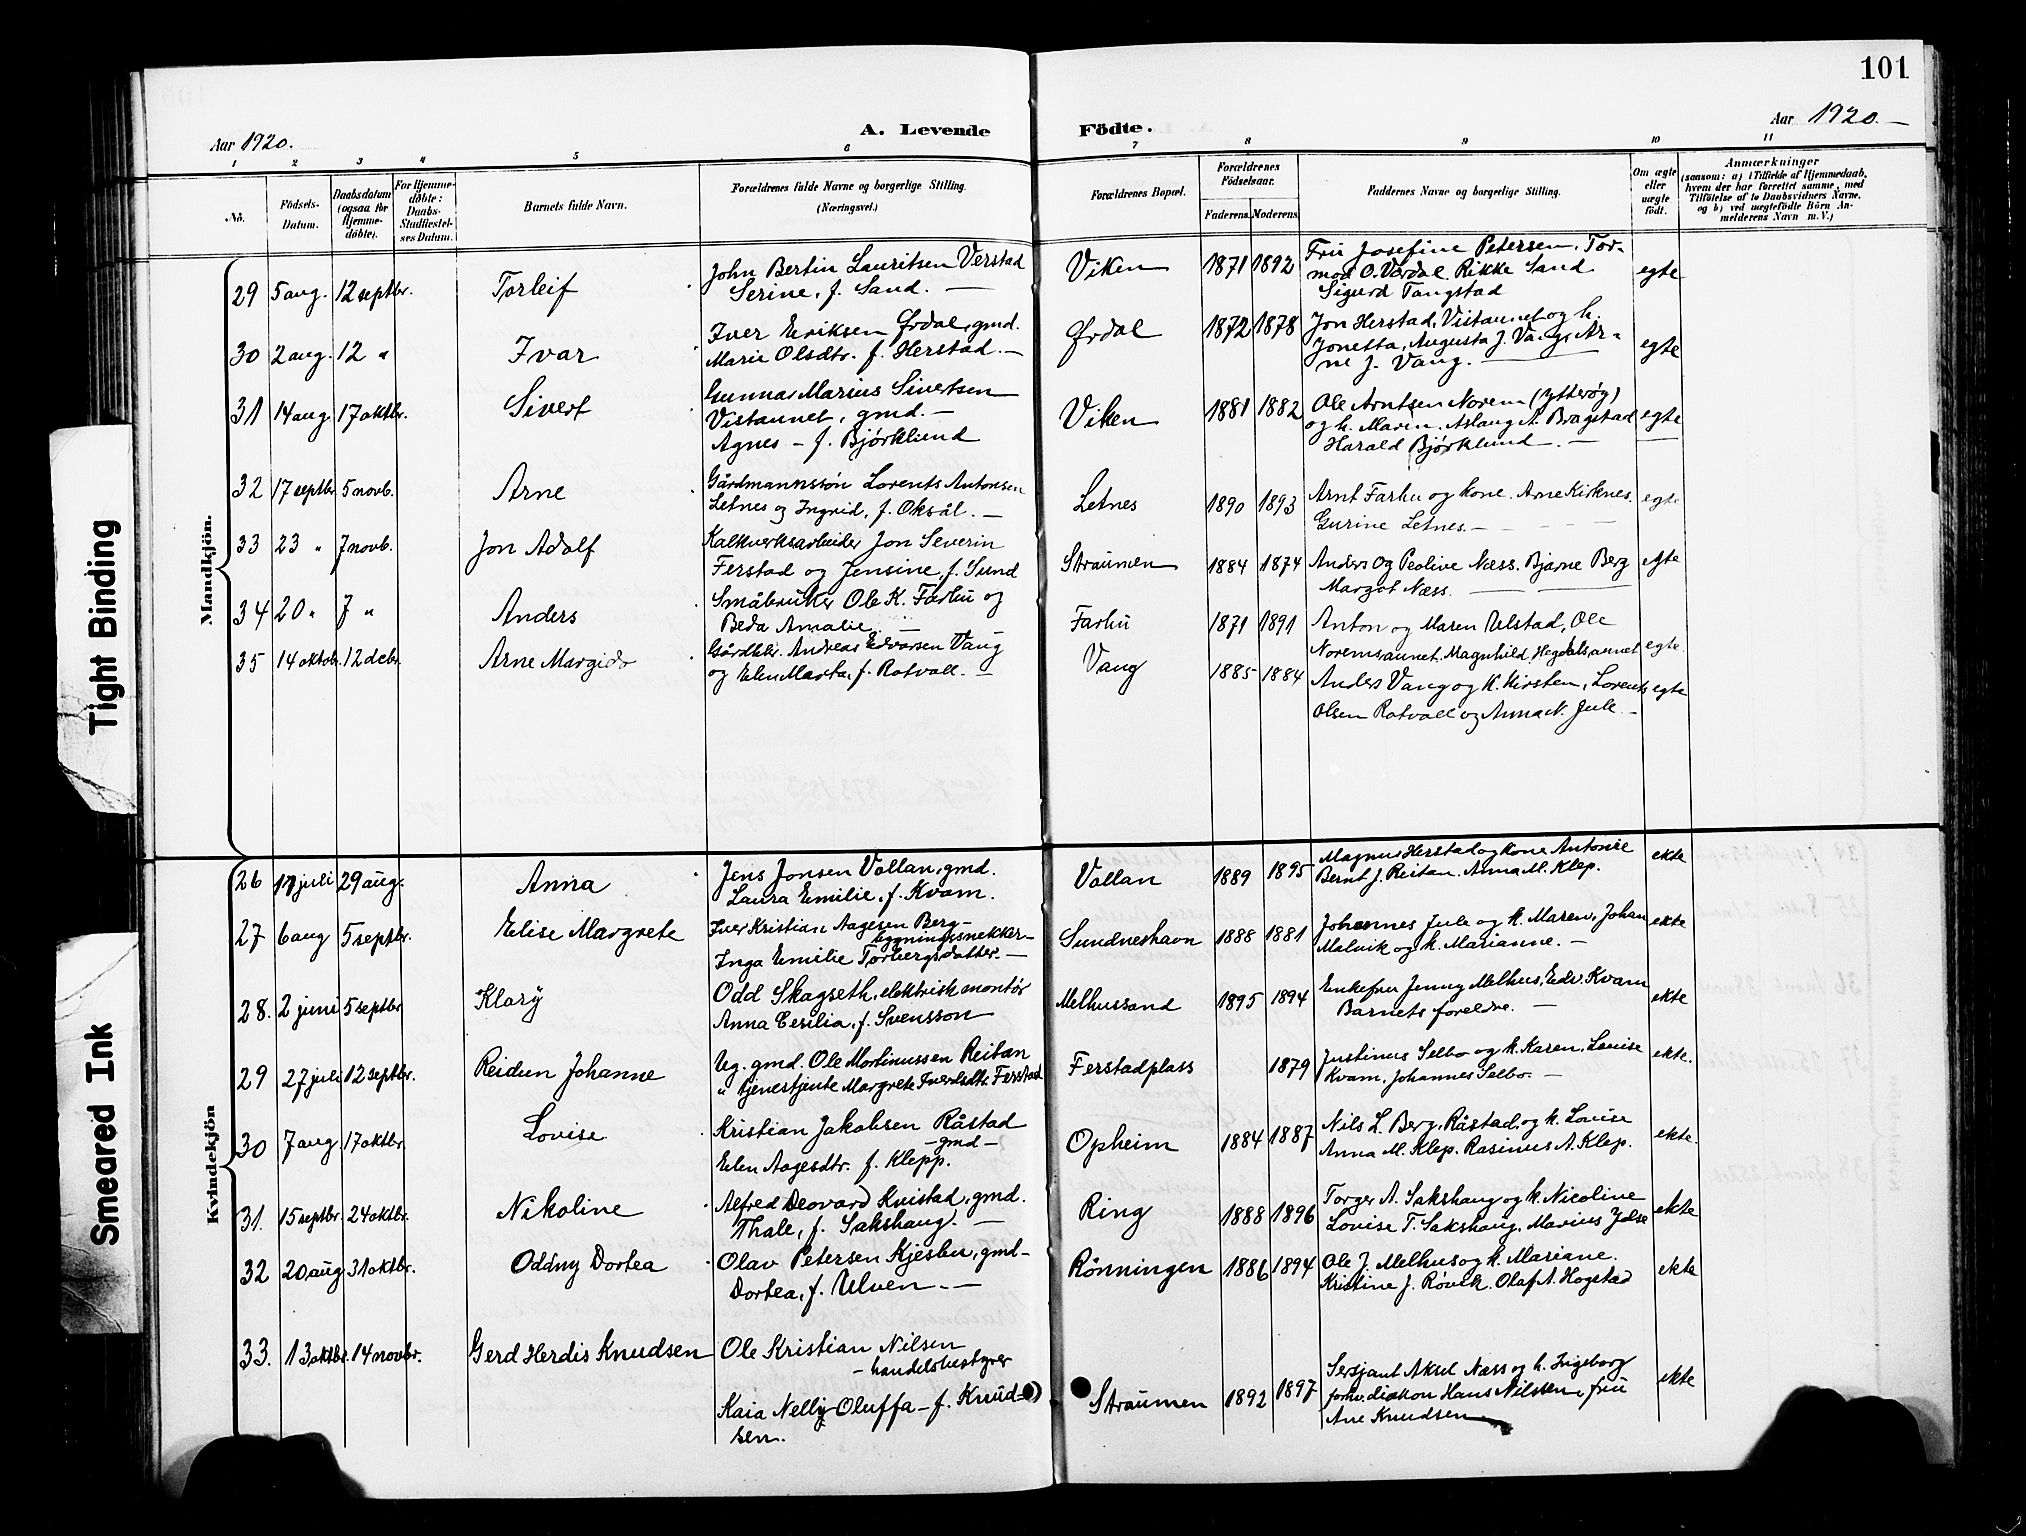 101
Aar 1920.
A. Levende Födte.
Aar 1920.
1 2 3 4 5 6 7 8 9 10 11
No.
Födsels-Datum.
Daabsdatum (ogsaa for Hjemme-döbte).
For Hjemme-döbte: Daabs-Stadfæstel-ses Datum.
Barnets fulde Navn.
Forældrenes fulde Navne og borgerlige Stilling.
(Næringsvei.)
Forældrenes Bopæl.
Forældrenes Födselsaar.
Faderens. Moderens.
Faddernes Navne og borgerlige Stilling.
Om ægte eller uægte födt.
Anmærkninger
(saasom: a) i Tilfælde af Hjemmedaab, hvem der har forrettet samme, med Tilföielse af to Daabsvidners Navne, og b) ved uægtefödte Börn An-melderens Navn m. V.)
Mandkjön.
29 5 aug. 12 septbr. Torleif
John Bertin Lauritsen Verstad
Serine, f. Sand. —
Viken 1871 1892
Fru Josefine Petersen, Tor-
mod O. Vordal, Rikke Sand
Sigurd Tangstad
egte
30 2 aug. 12 " Ivar
Iver Eriksen Ørdal, gmd.
Marie Olsdtr. f. Herstad. —
Ørdal 1872 1878
Jon Herstad, Vistaunet og h.
Jonetta, Augusta J. Vang, Ar-
ne J. Vang.
egte
31 14 aug. 17 oktbr. Sivert
Gunnar Marius Sivertsen
Vistaunet, gmd. —
Agnes — f. Bjørklund
Viken 1881 1882
Ole Arntsen Norem (Ytterøy)
og h. Maren, Aslaug A. Bragstad
Harald Bjørklund. —
egte
32 17 septbr. 5 novb. Arne
Gårdmannssøn Lorents Antonsen
Letnes og Ingrid, f. Oksål. —
Letnes 1890 1893
Arnt Farhu og kone. Arne Kirknes.
Gurine Letnes. —
egte
33 23 " 7 novb. Jon Adolf
Kalkverksarbeider Jon Severin
Ferstad og Jensine, f. Sund
Straumen 1884 1874
Anders og Peolive Næss. Bjarne Berg
Margot Næss.
egte
34 20 " 7 " Anders
Småbruker Ole K. Farhu og
Beda Amalie —
Farhu 1871 1891
Anton og Maren Ulstad, Ole
Noremsaunet. Magnhild Hegdalsaunet
egte.
35 14 oktobr. 12 debr. Arne Margido
Gårdbr. Andreas Edvarsen Vang
og Elen Marta, f. Rotvoll. —
Vang 1885 1884
Anders Vang og k. Kirsten, Lorents
Olsen Rotvoll og Anna N. Jule. —
egte
Kvindekjön
26 17 juli 29 aug. Anna
Jens Jonsen Vollan, gmd.
Laura Emilie, f. Kvam.
Vollan 1889 1895
Magnus Herstad og kone Antonie
Bernt J. Reitan. Anna M. Klep.
ekte
27 6 aug 5 septbr. Elise Margrete
Iver Kristian Aagesen Berg —
bygningssnekker —
Inga Emilie Torbergsdatter. —
Sundneshavn 1888 1881
Johannes Jule og k. Maren, Johan
Malvik og k. Marianne. —
ekte
28. 2 juni 5 septbr Klary
Odd Skagseth, elektrisk montør
Anna Cesilia, f. Svensson
Melhussand 1895 1894
Enkefru Jenny Melhus, Edv. Kvam
Barnets foreldre. —
ekte
29 27 juli 12 septbr. Reidun Johanne
Ug. gmd. Ole Martinussen Reitan
" tjenestjente Margrete Iversdtr. Ferstad
Ferstadplass 1879
Justinus Selbo og k. Karen, Louise
Kvam, Johannes Selbo. —
ekte.
30 7 aug 17 oktbr. Lovise
Kristian Jakobsen Råstad
— gmd —
Elen Aagesdtr. f. Klepp.
Opheim 1884 1887
Nils L. Berg, Råstad, og k. Louise
Anna M. Klep. Rasinus A. Klep.
ekte.
31. 15 septbr. 24 oktbr. Nikoline
Alfred Deovard Kvistad, gmd.
Thale, f. Sakshaug. —
Ring 1888 1896
Torger A. Sakshaug og k. Nicoline
Lovise T. Sakshaug, Marius Ydse
ekte
32 20 aug 31 oktbr. Oddny Dortea
Olav Petersen Kjesbu, gmd —
Dortea, f. Ulven. —
Rönningen 1886 1894
Ole J. Melhus og k. Mariane.
Kristine J. Røvik. Olaf A. Hogstad
ekte
33. 13 oktbr. 14 novbr. Gerd Herdis Knudsen
Ole Kristian Nilsen
— handelsbestyrer
Kaia Nelly Oluffa — f. Knud-
sen.
Straumen 1892 1897
Sersjant Aksel Næss og h. Ingeborg
forhv. diakon Hans Nilssen, fru
Ane Knudsen
ekte
Tight Binding
Smeared Ink